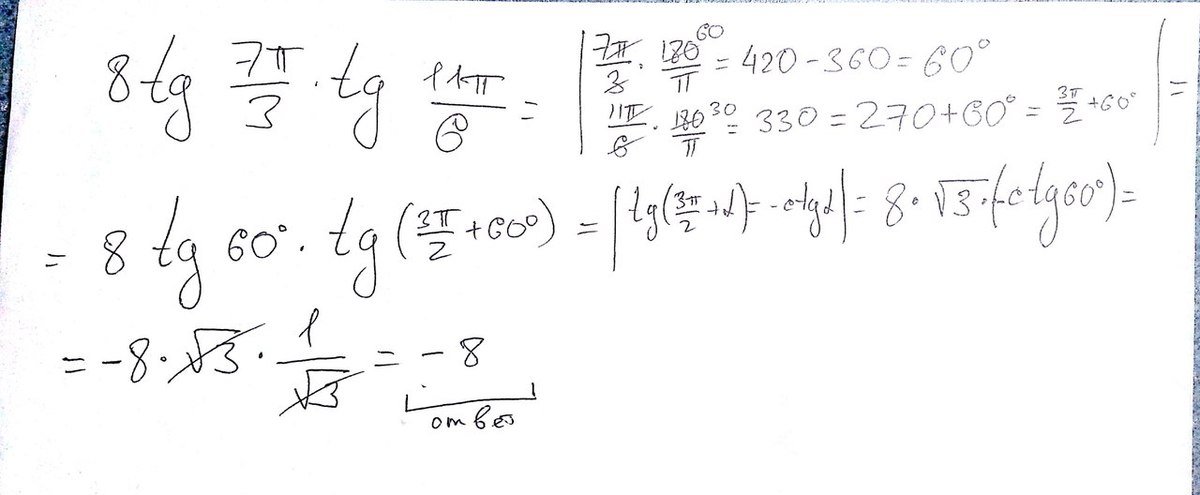 8 tg 7π/3 · tg 11π/6 = | 7π/3 · 180/π 60 = 420 - 360 = 60° | =
11π/6 · 180/π 30 = 330 = 270 + 60° = 3π/2 + 60°
= 8 tg 60° · tg (3π/2 + 60°) = | tg(3π/2 + α) = -ctg α | = 8 · √3 · (-ctg 60°) =
= -8 · √3 · 1/√3 = -8
ответ